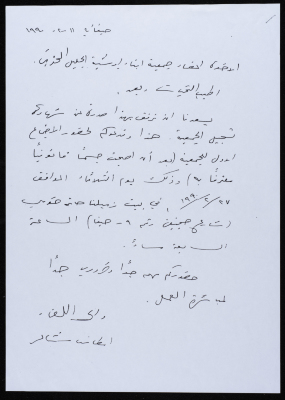 حيفا في ١١ /٢/ ١٩٩٠
الاخوة اعضاء جمعية ابناء ابرشية الجليل المحترمين.
اطيب التحيات وبعد،
يسعدنا ان نرفق بهذا صورة عن شهادة
تسجيل الجمعية. هذا وندعوكم لحضور الاجتماع
الاول للجمعية (بعد أن أصبحت جسمًا قانونيًا
معترفًا به) وذلك يوم الثلاثاء الموافق
٢٧/٢/١٩٩٠، في بيت زميلنا
(شارع صهيون رقم ٩ - حيفا) الساعة
السابعة مساءً.
حضوركم مهم جدًا وضروري جدًا
لمباشرة العمل.
والى اللقاء